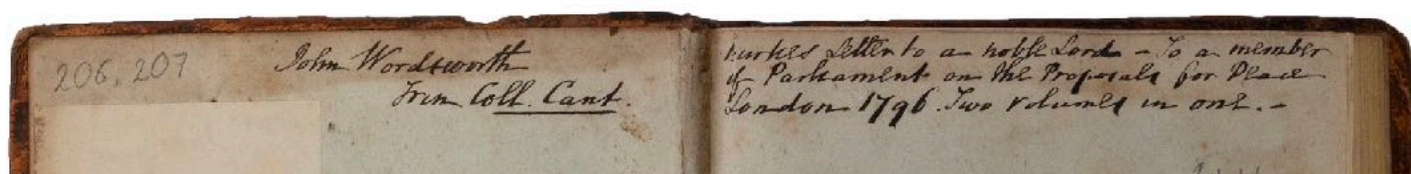 206, 207
John Wordsworth
Trin. Coll. Cant.
Burkes Letter to a noble Lord - To a member
of Parliament on the Proposals for Peace
London 1796. Two volumes in one. -